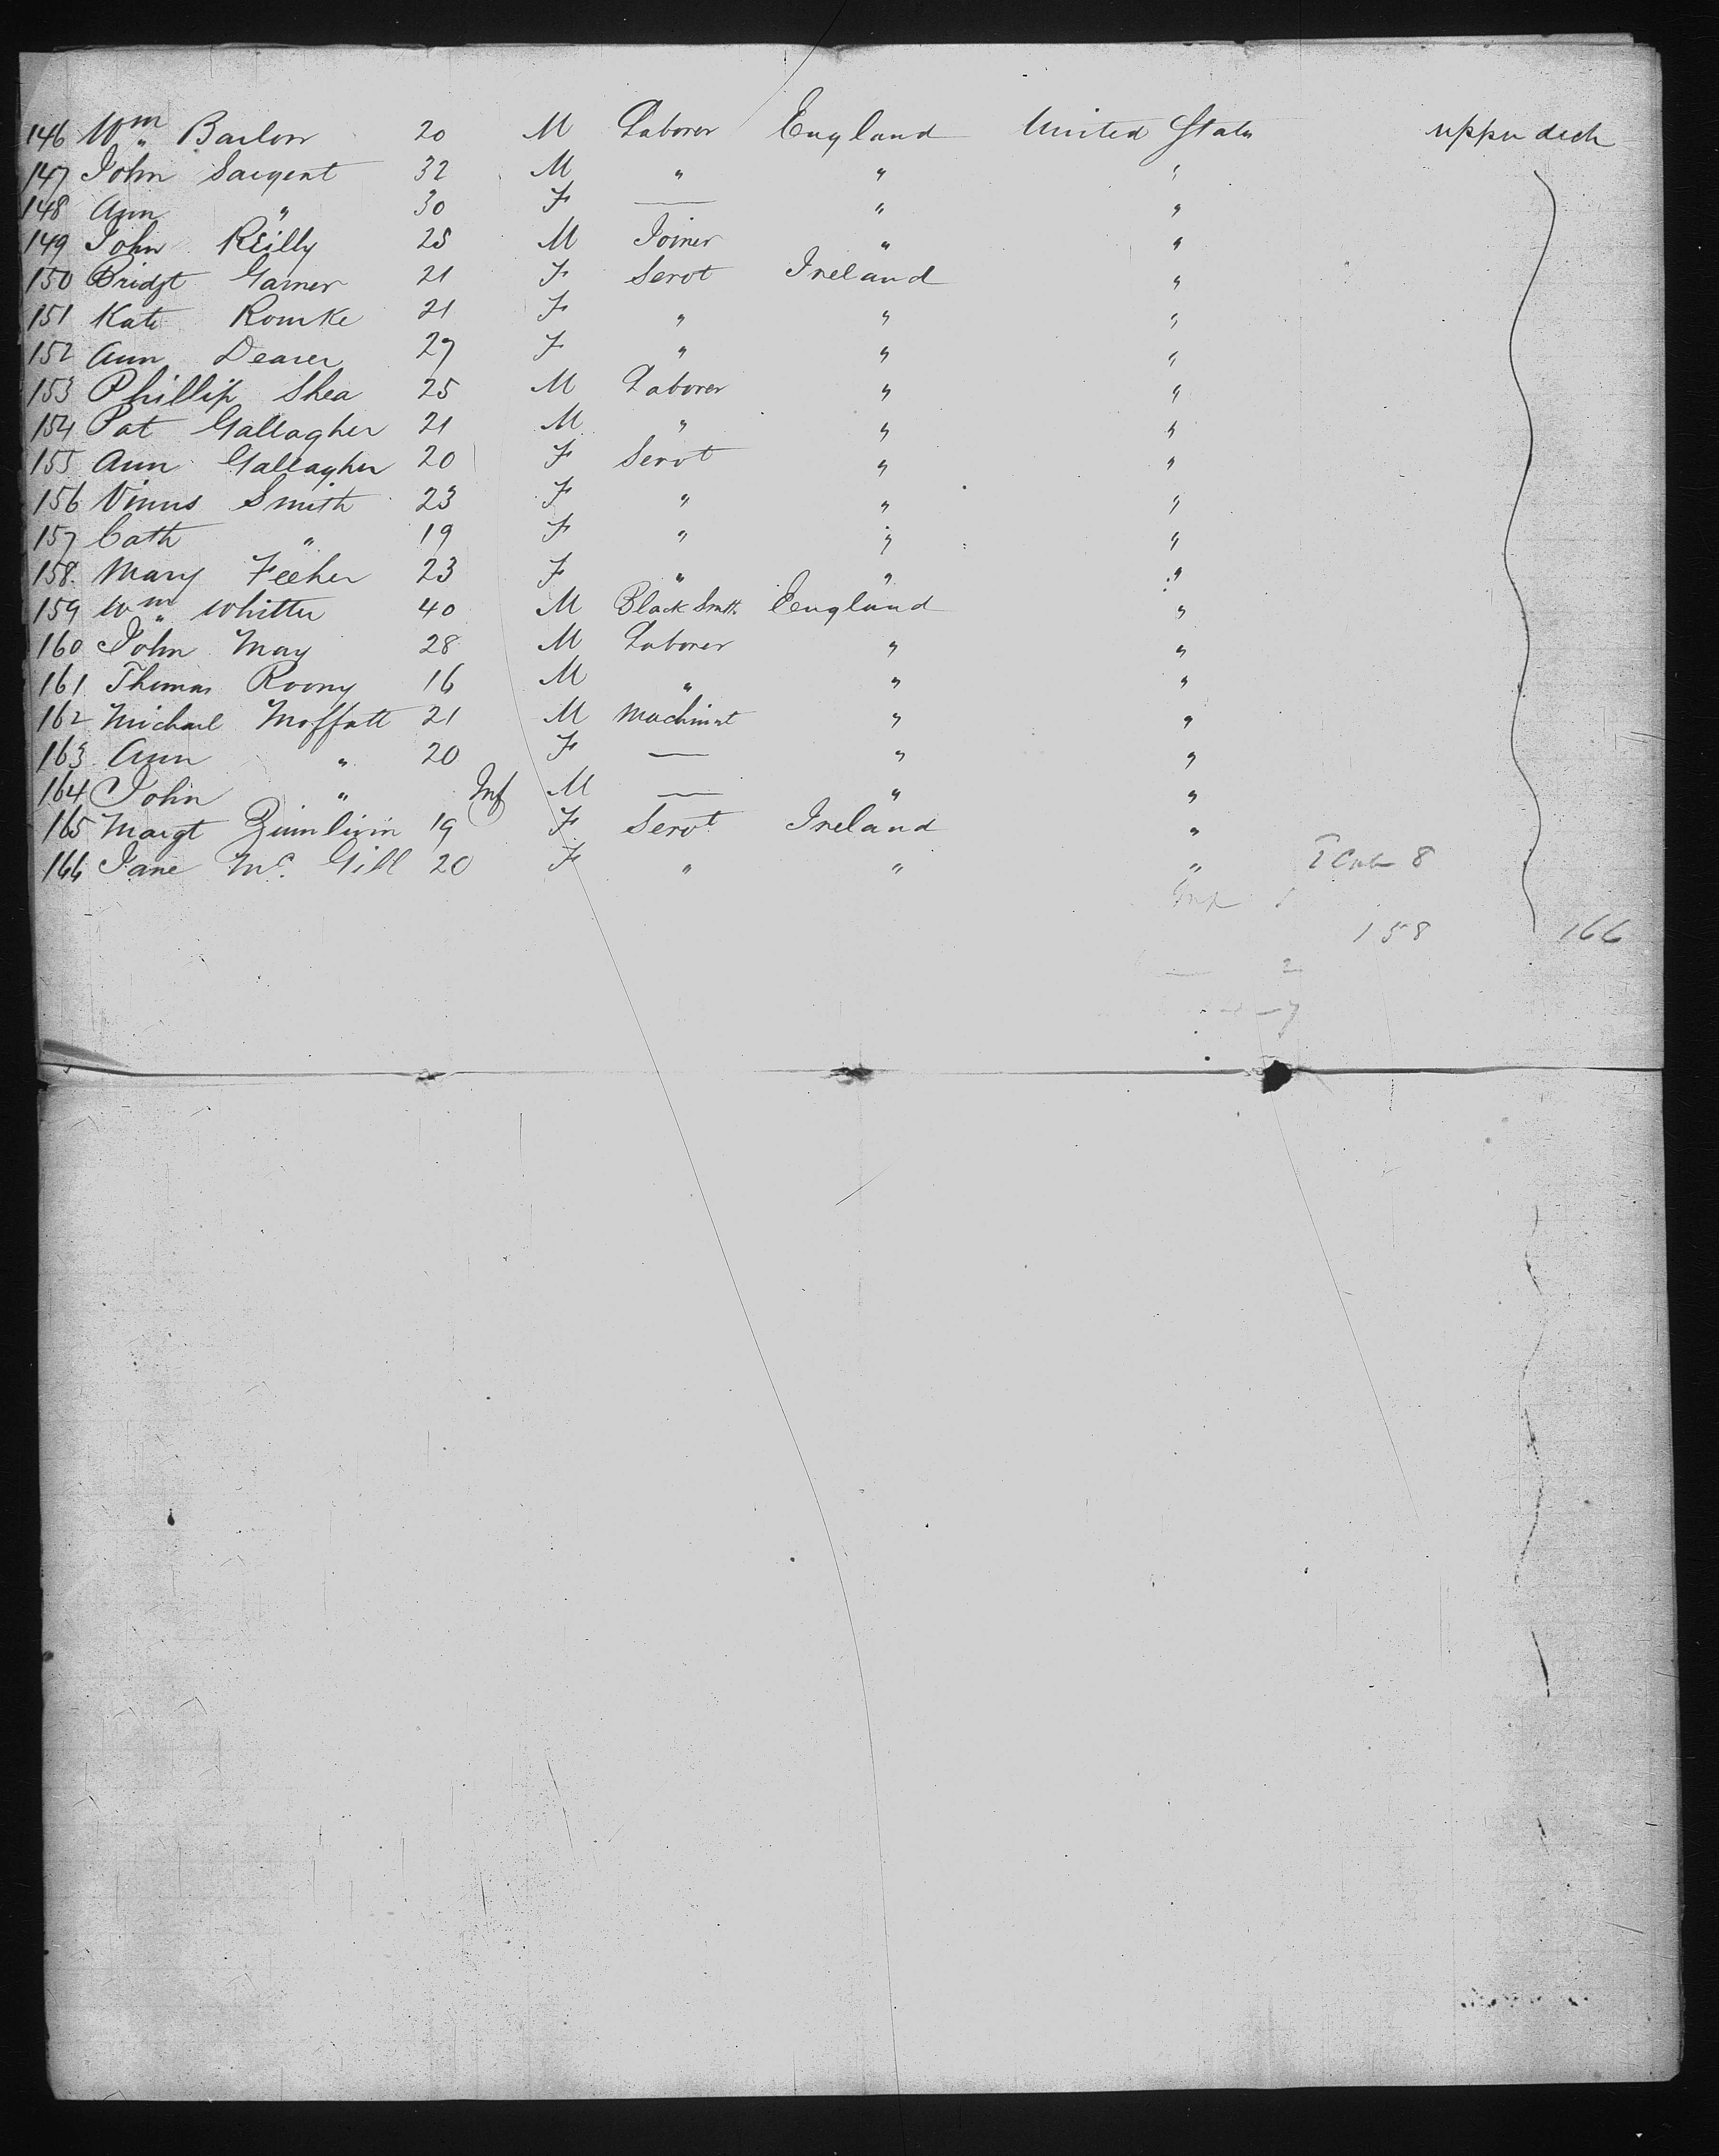 146 Wm Barlow 20 M Laborer England United States upper deck
147 John Sargent 32 M " " "
148 Ann " 30 F — " "
149 John Reilly 25 M Joiner " "
150 Bridgt Garner 21 F Servt Ireland "
151 Kate Rourke 21 F " " "
152 Ann Deaver 27 F " " "
153 Phillip Shea 25 M Laborer " "
154 Pat Gallagher 21 M " " "
155 Ann Gallagher 20 F Servt " "
156 Smith 23 F " " "
157 Cath " 19 F " " "
158. Mary Feeher 23 F " " "
159 Wm Whitter 40 M Black Smth England "
160 John May 28 M Laborer " "
161 Thomas Roony 16 M " " "
162 Michael Moffatt 21 M Machinist " "
163 Ann " 20 F — " "
164 John " Inf M — " "
165 Margt 19 F Servt Ireland "
166 Jane Mc Gill 20 F " " " 8
158 166
2
7